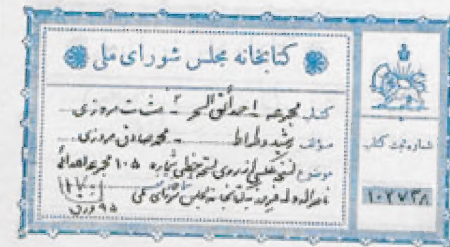 کتابخانه مجلس شورای ملی
کتاب مجموعه - حدائق السحر - منشآت مروزی
مؤلف رشید وطواط - محمد صادق مروزی
موضوع نسخه عکسی از روی نسخه خطی شماره ۱۰۵ مجموعه اهدائی
ناصرالدوله فیروز به کتابخانه مجلس شورای ملی
۹۵ ورق
شماره ثبت کتاب
۱۰۲۷۳۸